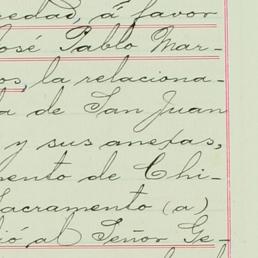 iedad, á favor
José Pablo Mar-
os, la relaciona-
a de San Juan
y sus anexas,
ento de Chi-
Sacramento (a)
ió, al Señor Ge-